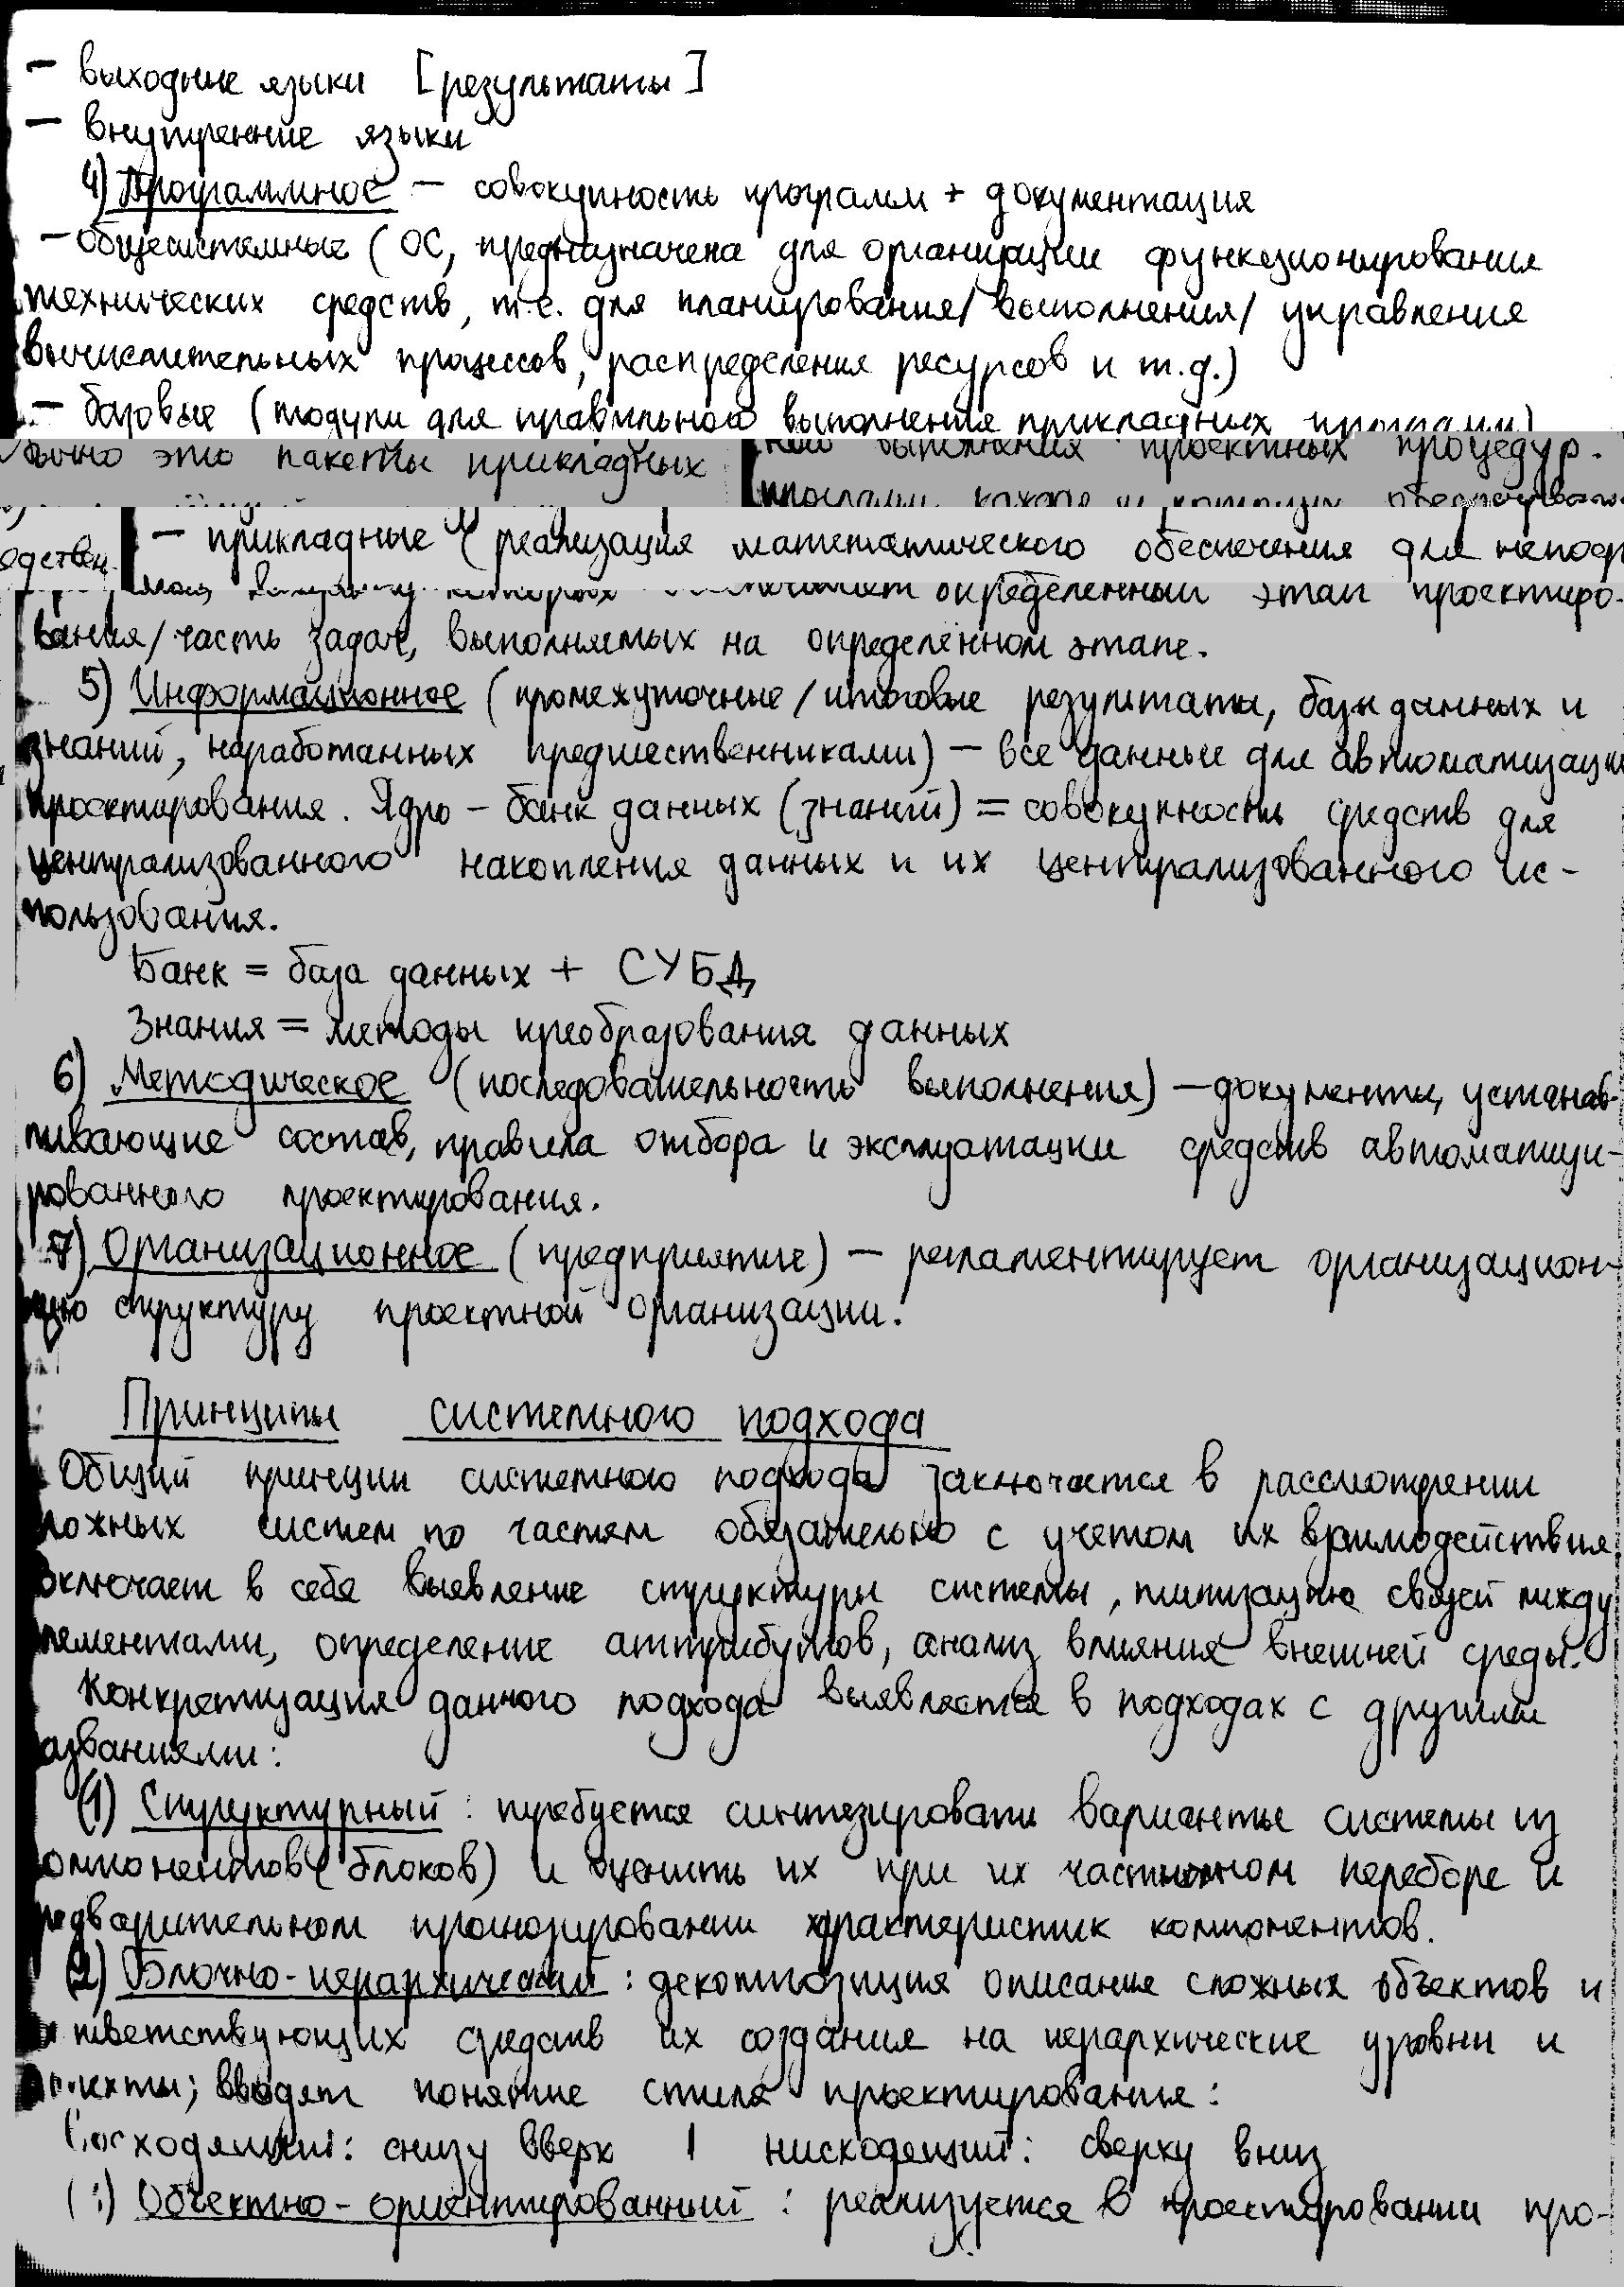 - выходные языки [результаты]
- внутренние языки
4) Программное - совокупность программ + документация
- общесистемные (ОС, предназначена для организации функционирования
технических средств, т.е. для планирования/выполнения/управления
вычислительных процессов, распределения ресурсов и т.д.)
- базовые (модули для правильного выполнения прикладных программ)
это пакеты прикладных
выполнения проектных процедур.
- прикладные (реализация математического обеспечения для непоср
едствен
определенный этап проектиро-
вания/часть задач, выполняемых на определенном этапе.
5) Информационное (промежуточные/итоговые результаты, базы данных и
знаний, наработанных предшественниками) - все данные для автоматизации
проектирования. Ядро - банк данных (знаний) = совокупность средств для
централизованного накопления данных и их централизованного ис-
пользования.
Банк = база данных + СУБД
Знания = методы преобразования данных
6) Методическое (последовательность выполнения) - документы, устанав-
ливающие состав, правила отбора и эксплуатации средств автоматизи-
рованного проектирования.
7) Организационное (предприятие) - регламентирует организацион-
ную структуру проектной организации.
Принципы системного подхода
Общий принцип системного подхода заключается в рассмотрении
ложных систем по частям обязательно с учетом их взаимодействия.
Включает в себя выявление структуры системы, типизацию связей между
лементами, определение аттрибутов, анализ влияния внешней среды.
Конкретизация данного подхода выявляется в подходах с другими
азваниями:
(1) Структурный: требуется синтезировать варианты системы из
омпонентов (блоков) и оценить их при их частичном переборе и
редварительном прогнозировании характеристик компонентов.
(2) Блочно-иерархический: декомпозиция описание сложных объектов и
тветствующих средств их создания на иерархические уровни и
вводят понятие стиля проектирования:
Восходящий: снизу вверх | нисходящий: сверху вниз
Объектно-ориентированный: реализуется в проектировании про-